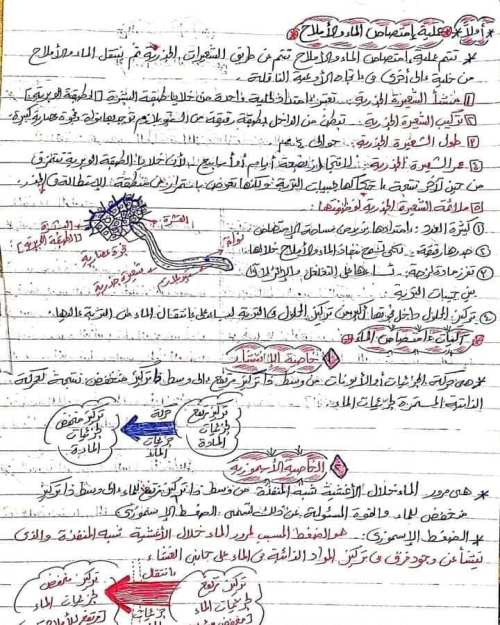 أولاً عملية امتصاص الماء والأملاح
* تتم عملية امتصاص الماء والأملاح تتم عن طريق الشعيرات الجذرية ثم ينتقل الماء والأملاح
من خلية إلى أخرى فى اتجاه الأوعية الناقلة .
١ منشأ الشعيرة الجذرية :- تعتبر امتداد لخلية واحدة من خلايا طبقة البشرة [الطبقة الوبرية]
٢ تركيب الشعيرة الجذرية :- تبطن من الداخل بطبقة رقيقة من السيتوبلازم توجد بها نواة وفجوة عصارية كبيرة .
٣ طول الشعيرة الجذرية :- حوالى ٤ مم
٤ عمر الشعيرة الجذرية :- لا يتجاوز بضعة أيام أو أسابيع لأن خلايا الطبقة الوبرية تتمزق
من حين لآخر نتيجة احتكاكها بحبيبات التربة ولكنها تعوض باستمرار من منطقة الاستطالة فى الجذر .
٥ ملائمة الشعيرة الجذرية لوظيفتها :-
١ كثيرة العدد : امتدادها يزيد من مساحة الامتصاص
٢ جدرها رقيقة :- لكى تسمح بنفاذ الماء والأملاح خلالها
٣ تفرز مادة لزجة :- تساعدها على التغلغل والانزلاق
بين حبيبات التربة
٤ تركيز المحلول داخل فجوتها أكبر من تركيز المحلول فى التربة ليساعد على انتقال الماء من التربة إليها .
البشرة
[الطبقة الوبرية]
القشرة
فجوة عصارية
شعيرة جذرية
سيتوبلازم
نواة
آليات امتصاص الماء
١ خاصية الانتشار
* هى حركة الجزيئات أو الأيونات من وسط ذا تركيز مرتفع إلى وسط ذا تركيز منخفض نتيجة للحركة
الذاتية المستمرة لجزيئات الماء .
تركيز مرتفع
لجزيئات
المادة
حركة
جزيئات
المادة
تركيز منخفض
لجزيئات
المادة
٢ الخاصية الأسموزية
* هى مرور الماء خلال الأغشية شبه المنفذة من وسط ذا تركيز مرتفع للماء إلى وسط ذا تركيز
منخفض للماء والقوة المسئولة عن ذلك تسمى الضغط الإسموزى
* الضغط الإسموزى :- هو الضغط المسبب لمرور الماء خلال الأغشية شبه المنفذة والذى
ينشأ عن وجود فرق فى تركيز المواد الذائبة فى الماء على جانبى الغشاء
تركيز مرتفع
لجزيئات الماء
تنتقل
جزيئات
تركيز منخفض
لجزيئات الماء